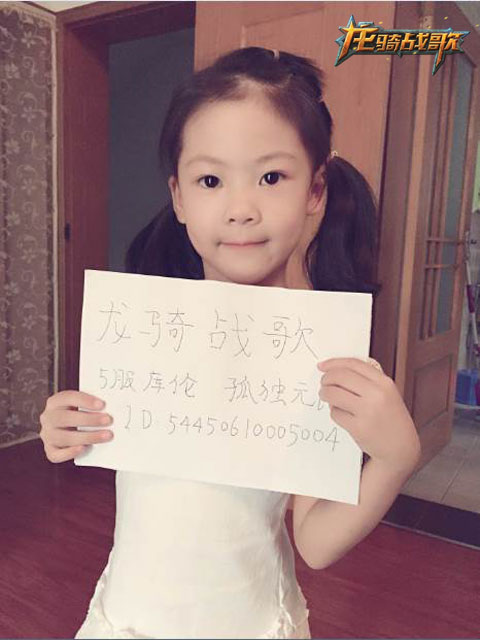 龙骑战歌
龙骑战歌
5服库伦 孤独元
ID:54450610005004